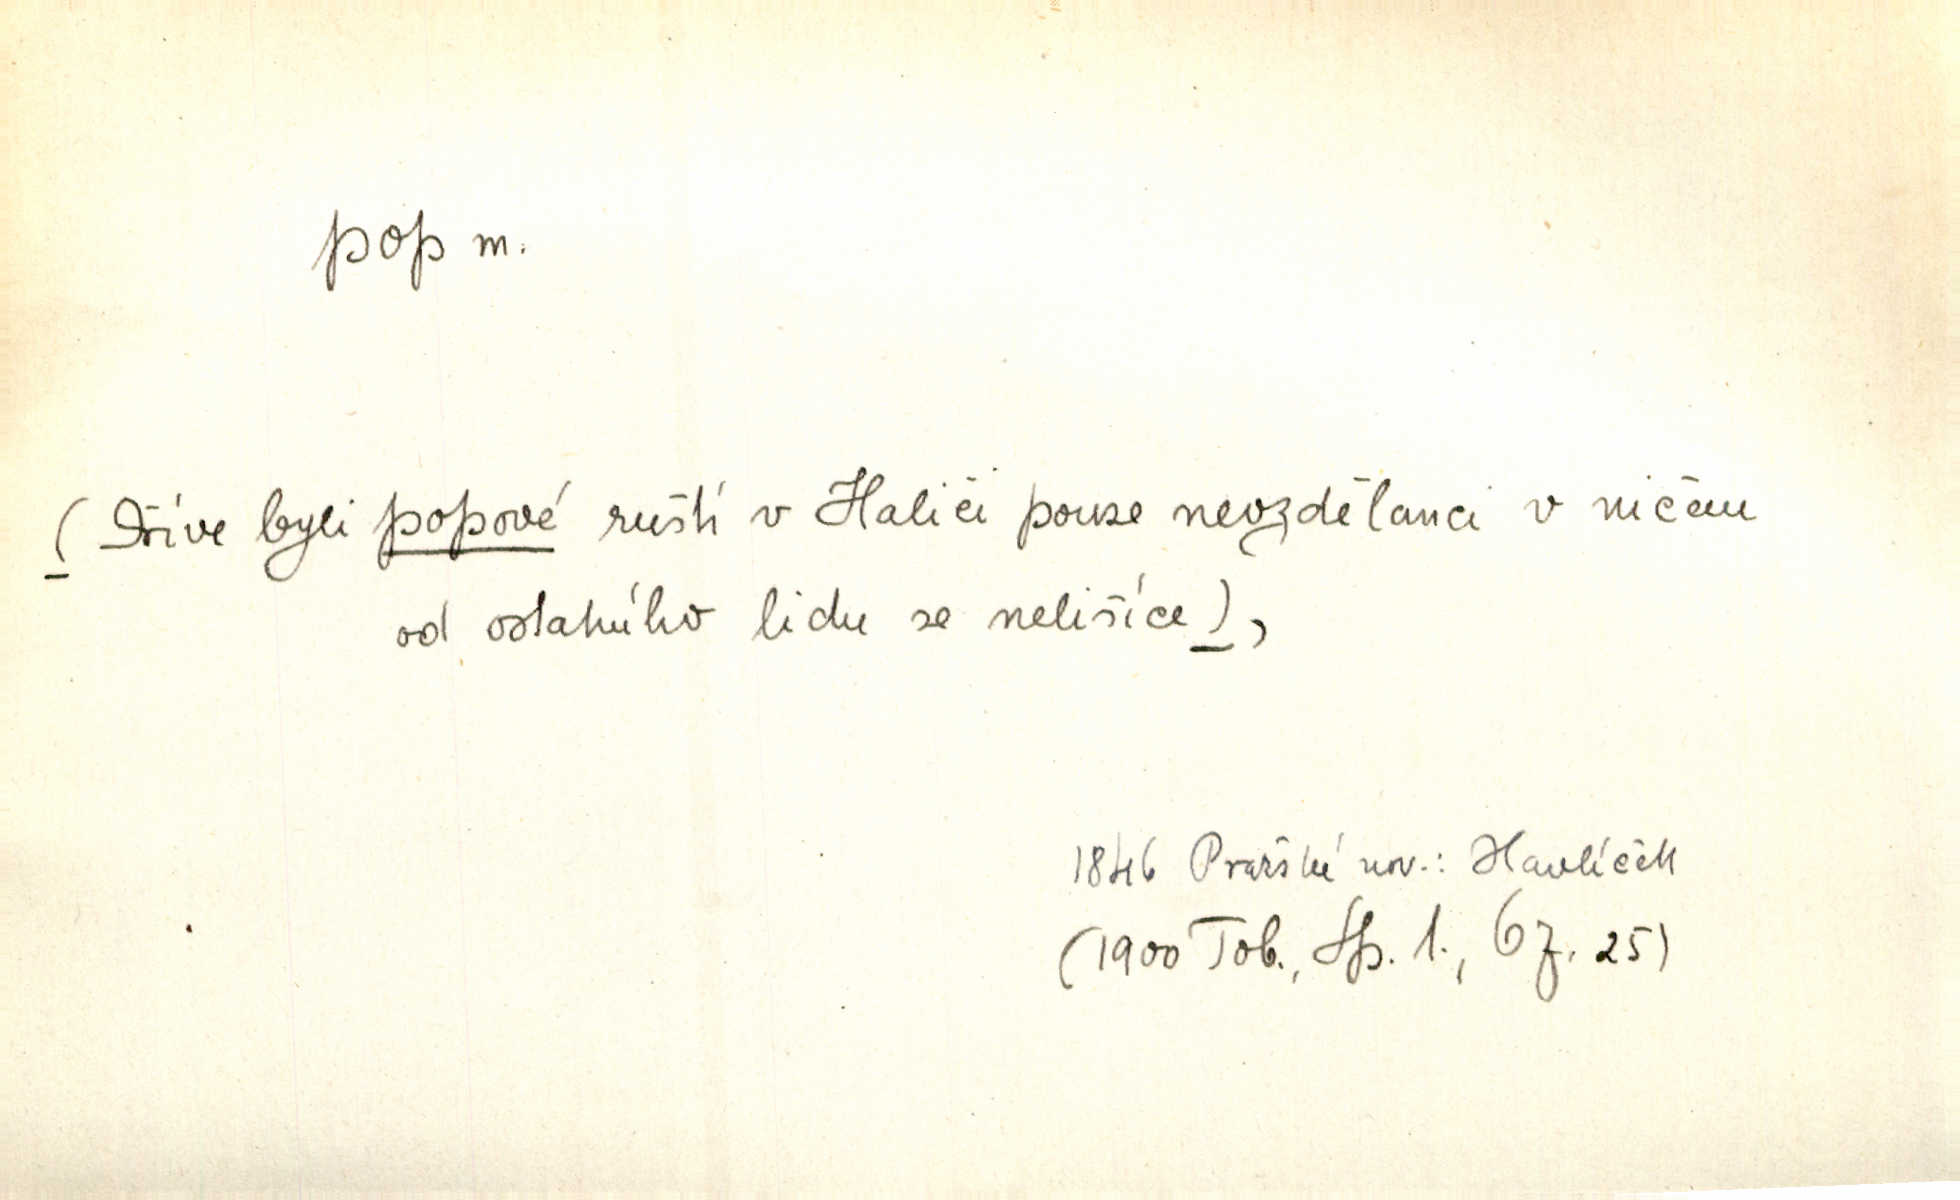 pop m.
(Dříve byli popové rušti v Haliči pouze nevzdělanci v ničem
od ostatního lidu se nelišíce),
1846 Pražské nov.: Havlíček
(1900 Tob., Sp. 1., 6z. 25)